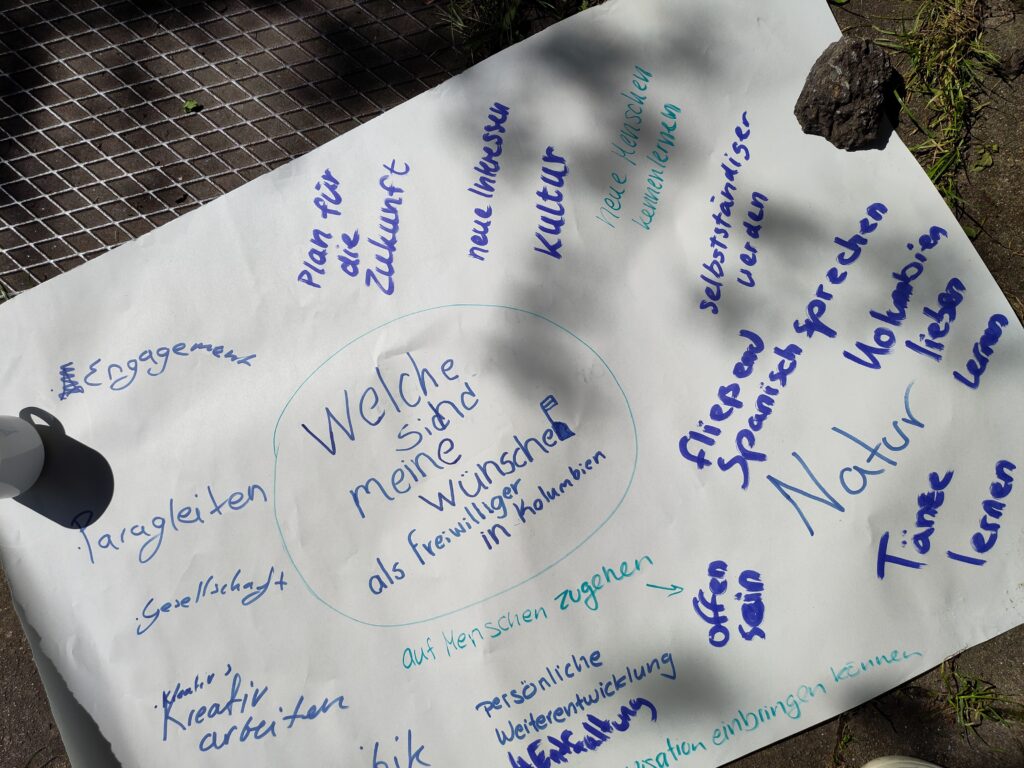 Plan für
die
Zukunft
neue Intressen
Kultur
neue Menschen
kennenlernen
selbstständiser
werden
fließend
Spanisch sprechen
Kolumbien
lieben
lernen
Engagement
Welche
sind
meine
wünsche
als freiwilliger
in Kolumbien
Natur
Tänze
lernen
Paragleiten
Gesellschaft
auf Menschen zugehen →
offen
sein
Kreativ
Kreativ
arbeiten
persönliche
Weiterentwicklung
einbringen können